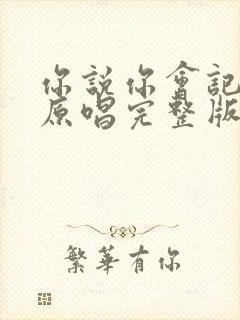 你說你會記
原唱完整版
繁華有你